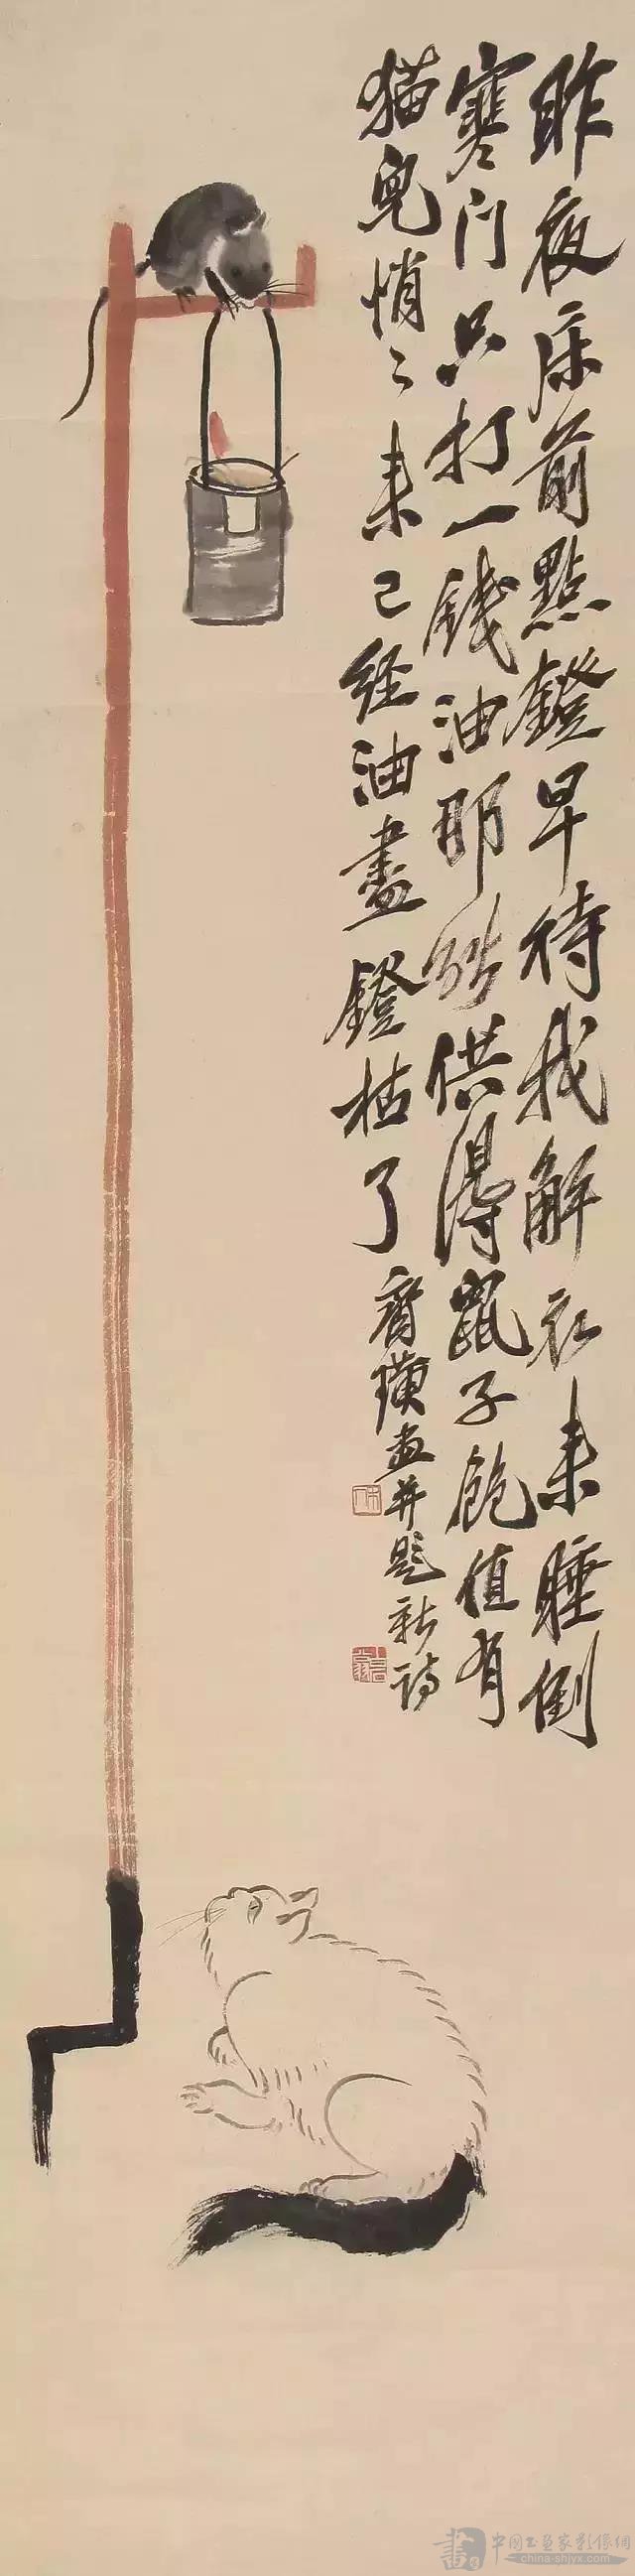 昨夜床前點鐙早待我解衣来睡倒
寒门只打一錢油那能供得鼠子飽值有
猫兒悄〻来已经油盡鐙枯了
齊璜畫并题新诗
木人
中国书画家影像網
china-shjyx.com